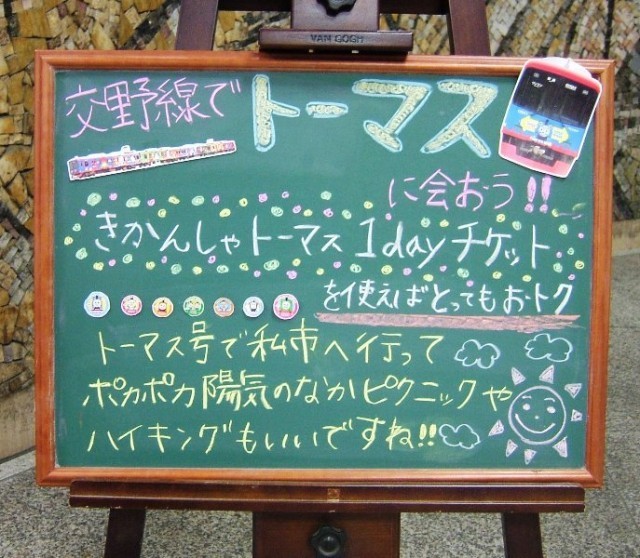 VAN GOGH
交野線で
トーマス
に会おう!!
きかんしゃトーマス 1dayチケット
を使えばとってもおトク
トーマス号で私市へ行って
ポカポカ陽気のなかピクニックや
ハイキングもいいですね!!